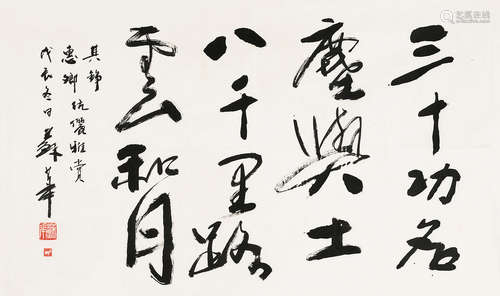 三十功名
塵與土
八千里路
雲和月
其錚
惠卿伉儷雅賞
戊辰冬日蘇華